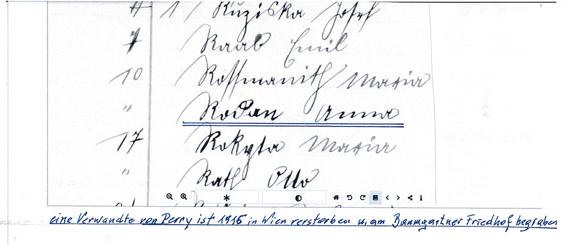 4 1 Ruziska Josef
7 Raab Emil
10 Rossmanith Maria
" Rodan Anna
17 Rokyta Maria
" Rath Otto
eine Verwandte von Perry ist 1916 in Wien verstorben u. am Baumgartner Friedhof begraben